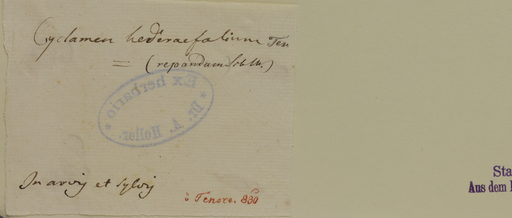 Cyclamen hederaefolium Ten
= (repandum Sibth.)
Ex herbario
Dr. A. Holler.
In arvis et sylvis
à Tenore. 830
Sta
Aus dem